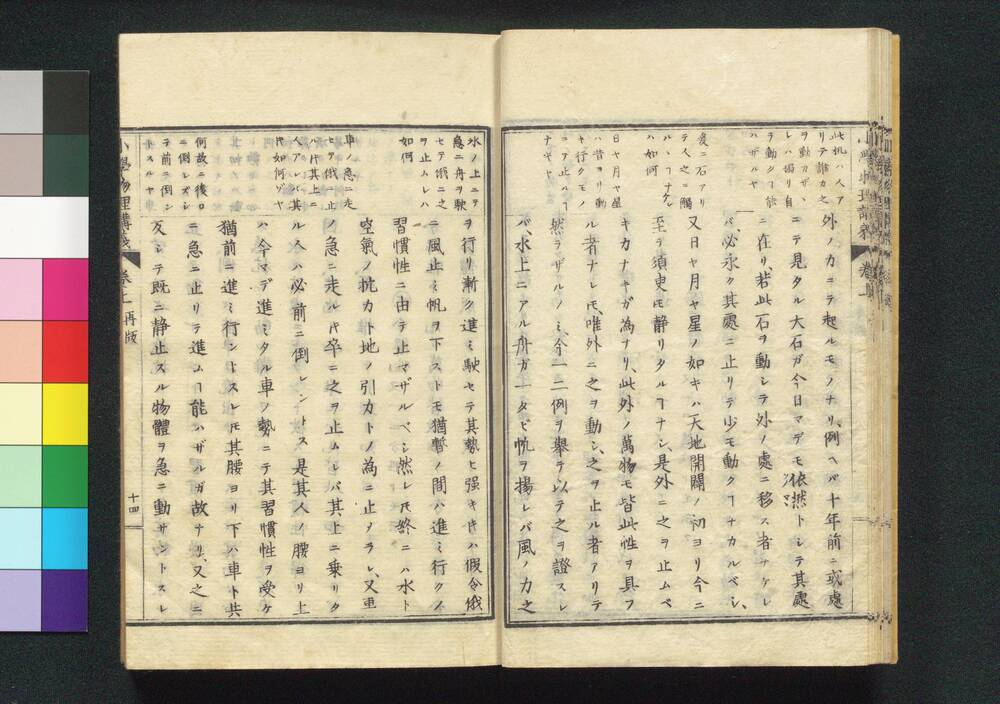 此机ハ人ア
リテ誰カ之
ヲ動カザ
レハ獨リ自
ラ動クヿ能
ハザルヤ
爰ニ石アリ
テ人之ニ觸
ルヽヿナク
ハ如何
日ヤ月ヤ星
ハ昔ヨリ動
キ行クモノ
ニテ止ルヿ
ナキヤ
外ノカニテ起ルモノナリ、例ヘバ十年前ニ或處
ニテ見タル大石ガ今日マデモ依然トシテ其處
ニ在リ、若此石ヲ動シテ外ノ處ニ移ス者ナケレ
バ、必永ク其處ニ止リテ少モ動クヿナカルベシ、
又日ヤ月ヤ星ノ如キハ天地開闢ノ初ヨリ今ニ
至テ須臾モ静リタルヿナシ是外ニ之ヲ止ムベ
キカナキガ為ナリ、此外ノ萬物モ皆此性ヲ具フ
ル者ナレ𪜈、唯外ニ之ヲ動シ、之ヲ止ル者アリテ
然ラザルノミ、今一二例ヲ舉テ以テ之ヲ證スレ
バ、水上ニアル舟ガ一タビ帆ヲ揚レバ風ノ力之
水ノ上ニテ
急ニ舟ヲ駛
セテ俄ニ之
ヲ止ムレハ
如何
車ノ急ニ走
ヒヲ俄ニ止
ハ𪜈其上ニ
人アレバ其
𪜈如何ゾヤ
何故ニ後ロ
ニ倒レズシ
テ前ニ倒ン
トスルヤ
ヲ行リ漸ク進ミ駛セテ其勢ヒ强キ𪜈ハ假令俄
ニ風止ミ帆ヲ下ストモ猶暫ノ間ハ進ミ行クハ
習慣性ニ由テ止マザルベシ然レ𪜈終ニハ水ト
空氣ノ抗カト地ノ引カトノ為ニ止メラレ、又車
ノ急ニ走ル𪜈卒ニ之ヲ止ムレバ其上ニ乗リタ
ル人ハ必前ニ倒レントス是其人ノ腰ヨリ上
ハ今マデ進ミタル車ノ勢ニテ其習慣性ヲ受ケ
猶前ニ進ミ行ントスレ𪜈其腰ヨリ下ハ車ト共
ニ急ニ止リテ進ムヿ能ハザルガ故ナリ、又之ニ
反シテ既ニ静止スル物體ヲ急ニ動サントスレ
小學物理講義
卷上
再版
十四